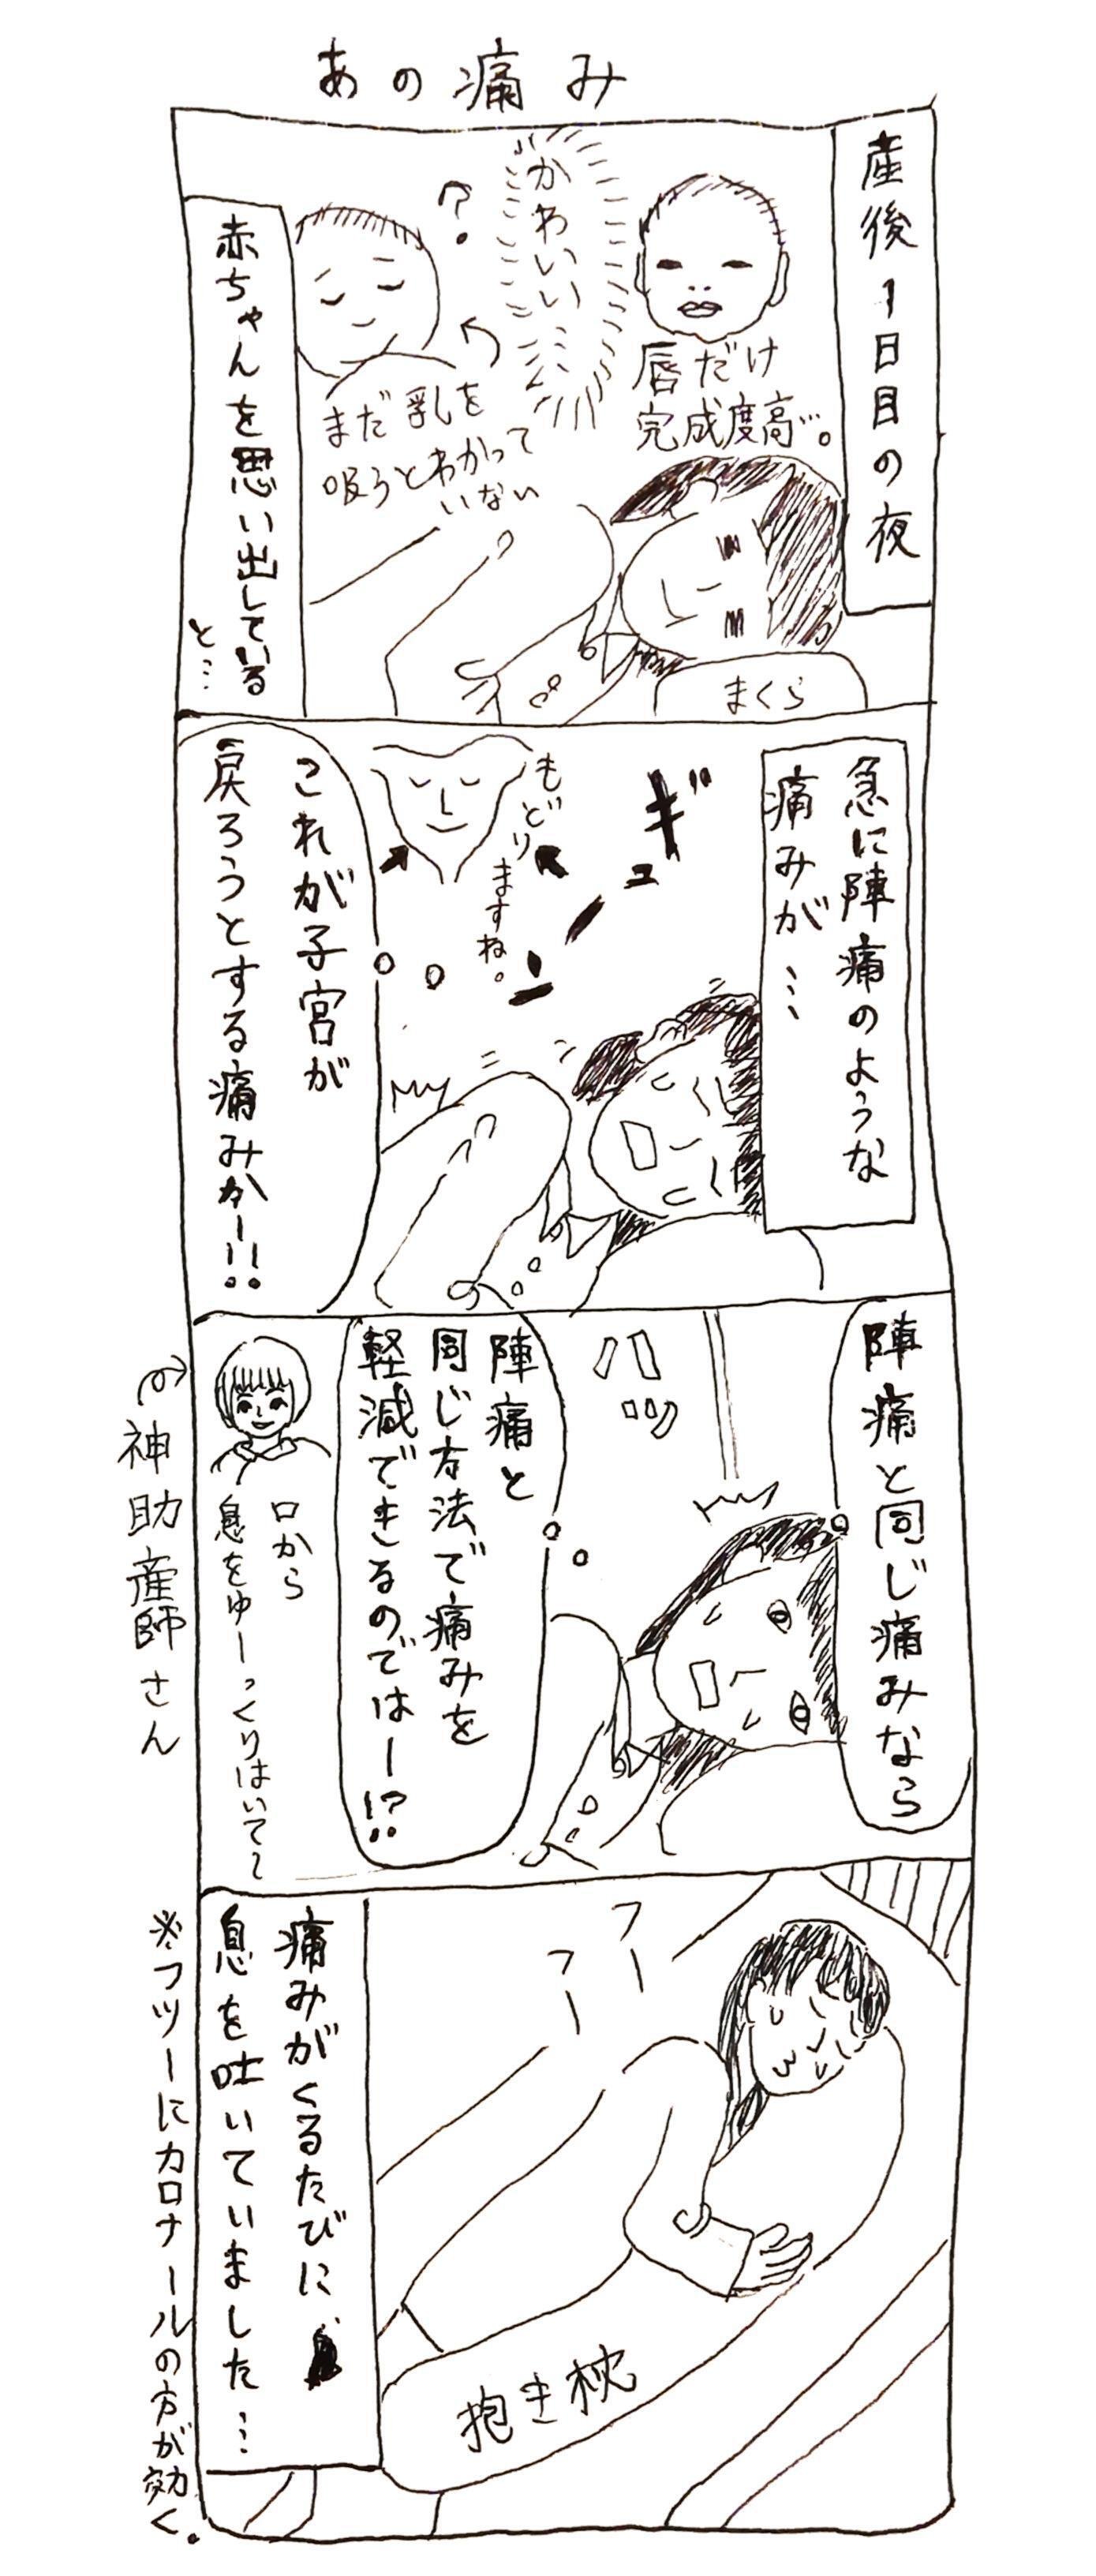 あの痛み
産後1日目の夜
唇だけ
完成度高…。
かわいい…
?
まだ乳を
吸うとわかって
いない
まくら
赤ちゃんを思い出している
と…
急に陣痛のような
痛みが…
ギュー
もどり
ますね。
これが子宮が
戻ろうとする痛みかー!!
陣痛と同じ痛みなら
ハッ
陣痛と
同じ方法で痛みを
軽減できるのではー!?
口から
息をゆーっくりはいて~
神助産師さん
フー
フー
抱き枕
痛みがくるたびに
息を吐いていました…
※フツーにカロナールの方が効く。